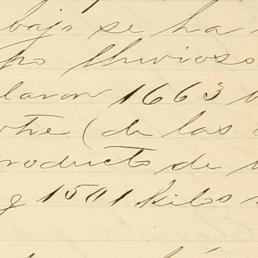 bajo se ha
po lluvioso
laron 1663
(de las
producto de
y 1501 kilos